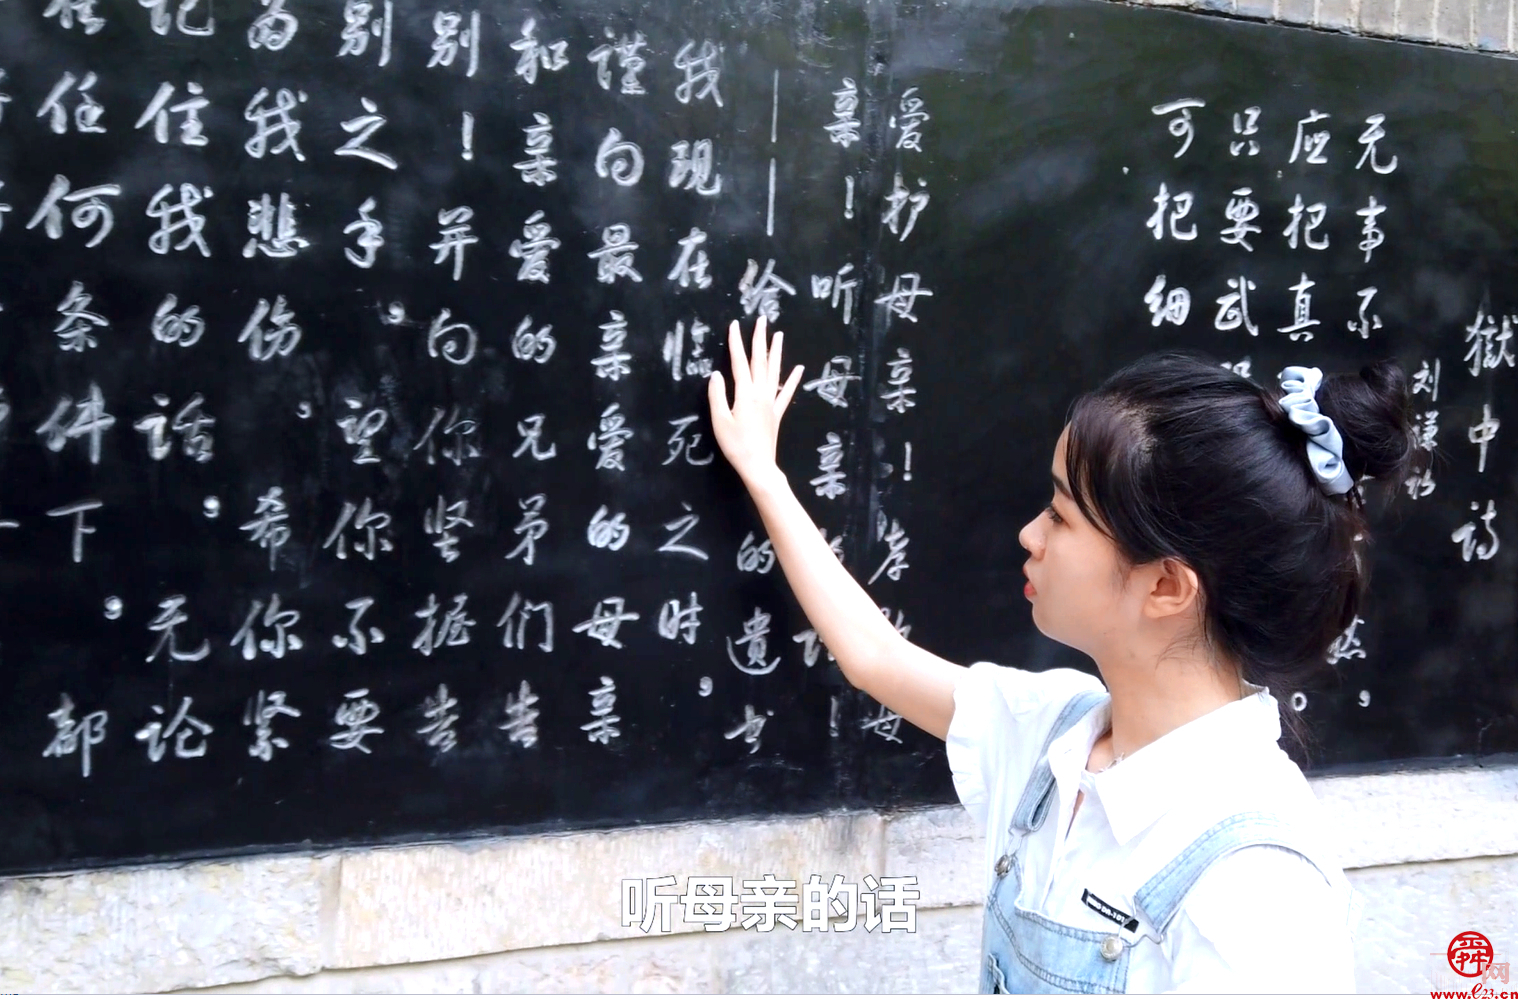 獄中诗
刘谦初
无事不
应把真
只要武
可把细
爱护母亲！孝敬母
亲！听母亲的话！
——给的遗书
我现在临死之时，
谨向最亲爱的母亲
和亲爱的兄弟们告
别！并向你坚握告
别之手，望你不要
为我悲伤，希你紧
记住我的话，无论
在任何条件下，都
听母亲的话
舜网
www.e23.cn